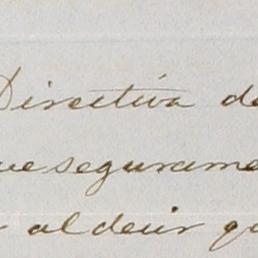 Directiva de
ue segurame
al decir qu